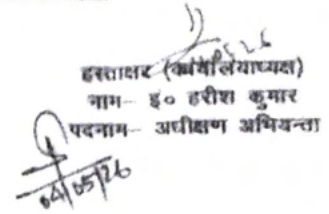 हस्ताक्षर (कार्यालयाध्यक्ष)
नाम- इ० हरीश कुमार
पदनाम- अधीक्षण अभियन्ता
04/05/26